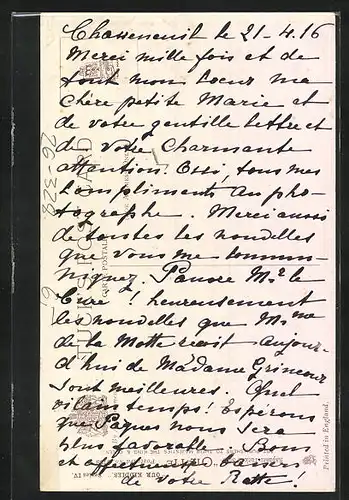 Chasseneuil le 21-4.16
Merci mille fois et de
tout mon Coeur ma
chère petite Marie et
de votre gentille lettre et
de votre Charmante
attention. tous mes
Compliments au pho-
tographe. Merci aussi
de toutes les nouvelles
que vous me commu-
niquez. Pauvre Mr. le
Curé! heureusement
les nouvelles que Mme
de la Motte aujour-
d'hui de Madame
sont meilleures. Quel
vilain temps! Espérons
que Pâques nous sera
plus favorable. Bons
et affectueux baisers
de votre
TUCK'S POST CARD
CARTE POSTALE
Printed in England.
26-328